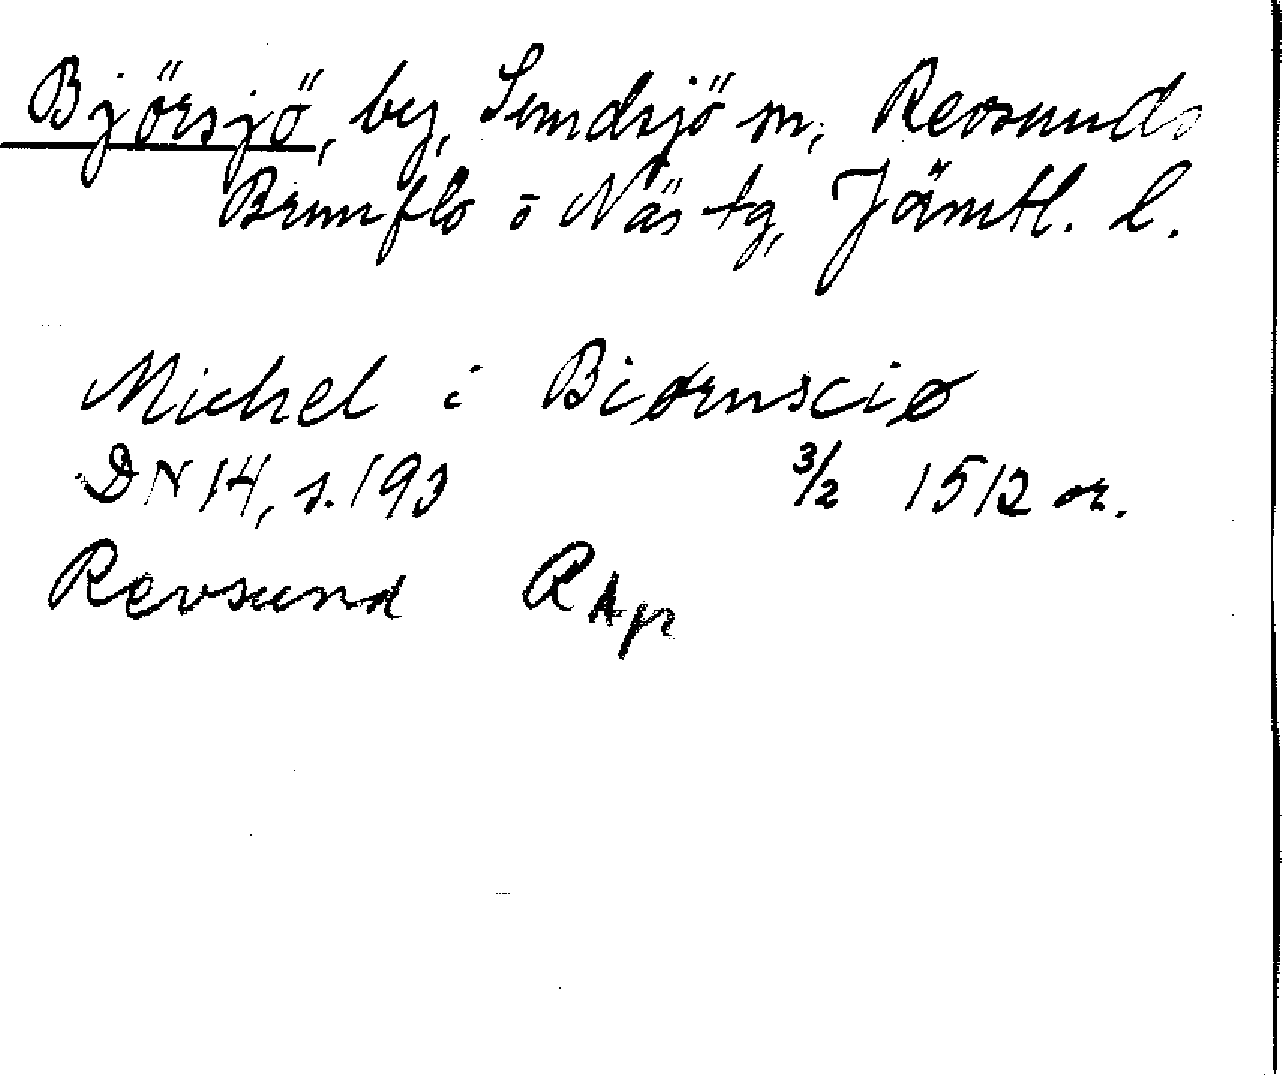 Björsjö, by, Sundsjö sn, Revsunds
Brunflo o Näs tg, Jämtl. l.
Michel i Biørnsciø
DN 14, s. 193 3/2 1512 or.
Revsund RApr